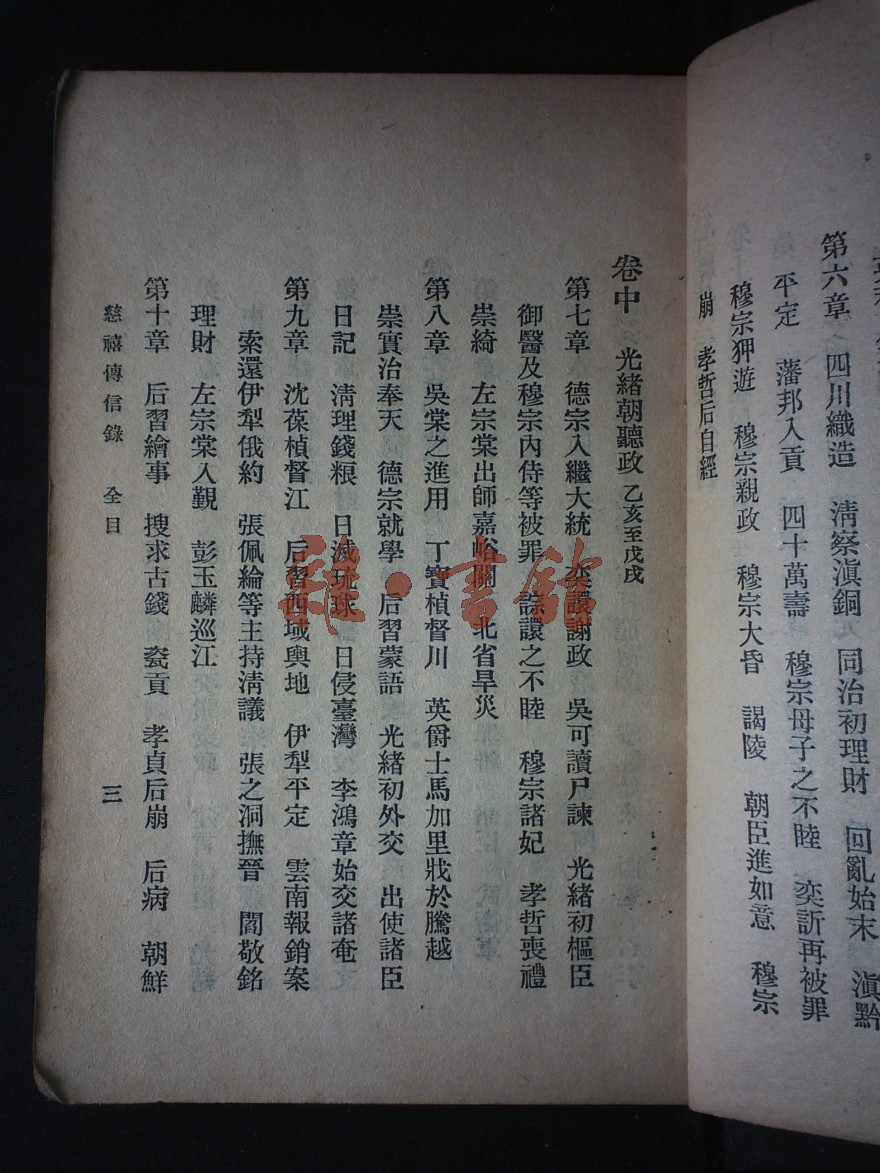 第六章　四川織造　淸察滇銅　同治初理財　回亂始末　滇黔
平定　藩邦入貢　四十萬壽　穆宗母子之不睦　奕訢再被罪
穆宗狎遊　穆宗親政　穆宗大昏　謁陵　朝臣進如意　穆宗
崩　孝哲后自經
卷中　光緖朝聽政　乙亥至戊戌
第七章　德宗入繼大統　奕譞謝政　吳可讀尸諫　光緖初樞臣
御醫及穆宗內侍等被罪　誴譞之不睦　穆宗諸妃　孝哲喪禮
崇綺　左宗棠出師嘉峪關　北省旱災
第八章　吳棠之進用　丁寶楨督川　英爵士馬加里戕於騰越
崇實治奉天　德宗就學　后習蒙語　光緖初外交　出使諸臣
日記　淸理錢粮　日滅琉球　日侵臺灣　李鴻章始交諸奄
第九章　沈葆楨督江　后習西域輿地　伊犁平定　雲南報銷案
索還伊犁俄約　張佩綸等主持淸議　張之洞撫晉　閻敬銘
理財　左宗棠入覲　彭玉麟巡江
第十章　后習繪事　搜求古錢　瓷貢　孝貞后崩　后病　朝鮮
慈禧傳信錄　全目　三
雅·書館